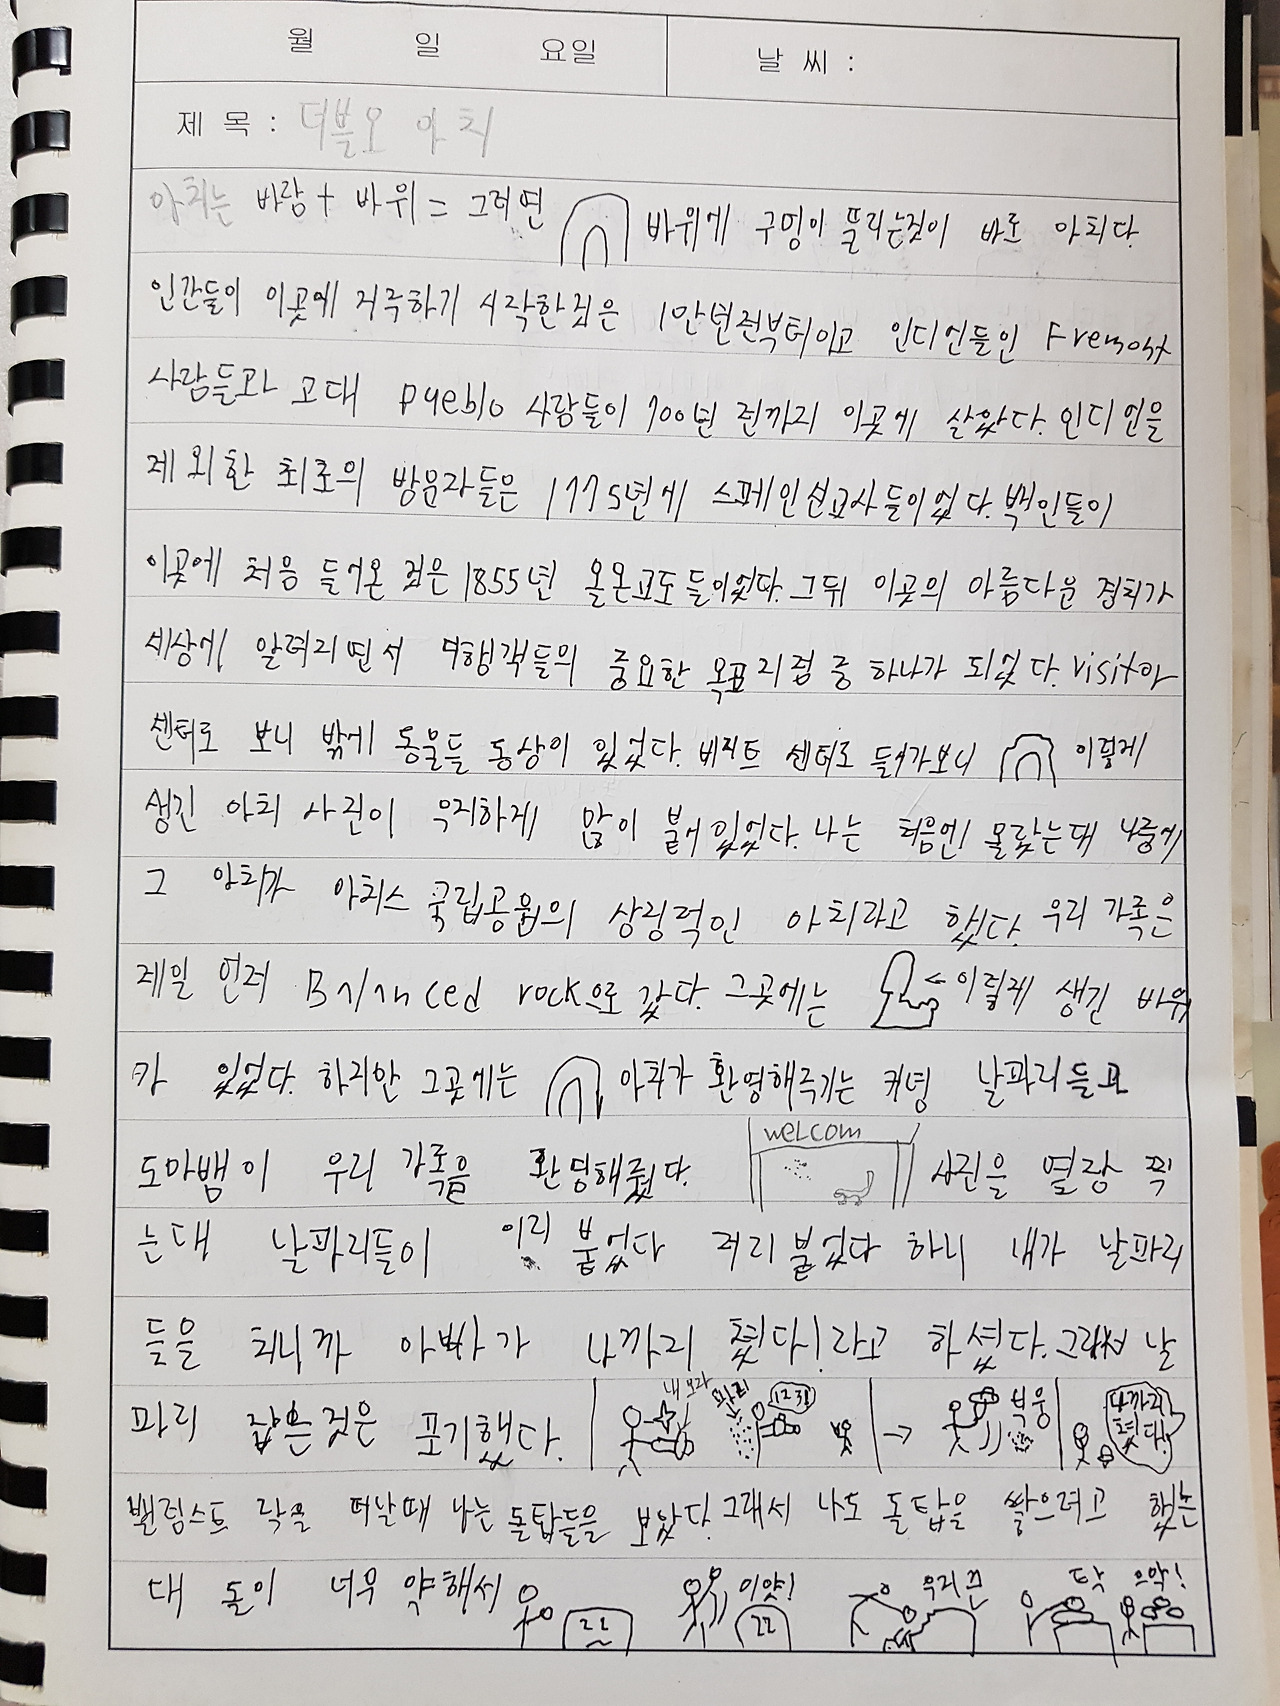 월 일 요일 날 씨 :
제 목 : 더블오 아치
아치는 바람 + 바위 = 그러면 바위에 구멍이 뚤리는것이 바로 아치다.
인간들이 이곳에 거주하기 시작한것은 1만년전부터이고 인디언들인 Fremont
사람들과 고대 pueblo 사람들이 700년 전까지 이곳에 살았다. 인디언을
제외한 최초의 방문자들은 1775년에 스페인선교사들이었다. 백인들이
이곳에 처음 들어온 것은 1855년 몰몬교도들이었다. 그뒤 이곳의 아름다운 경치가
세상에 알려지면서 여행객들의 중요한 목표지점 중 하나가 되었다. visitor
센터로 보니 밖에 동물들 동상이 있었다. 비지트 센터로 들어가보니 이렇게
생긴 아치 사진이 우지하게 많이 붙어있었다. 나는 처음엔 몰랐는대 나중에
그 아치가 아치스 국립공원의 상징적인 아치라고 했다. 우리 가족은
제일 먼저 Balanced rock으로 갔다. 그곳에는 ← 이렇게 생긴 바위
가 있었다. 하지만 그곳에는 아치가 환영해주기는 커녕 날파리들과
도마뱀이 우리 가족을 환영해줬다. welcom 사진을 열랑 찍
는대 날파리들이 이리 붙었다 저리 붙었다 하니 내가 날파리
들을 치니까 아빠가 나까지 쳤다!라고 하셨다. 그래서 날
파리 잡은것은 포기했다. 내 모자 파리 123 → 부웅 나까지 쳤다!
밸런스트 락을 떠날때 나는 돌탑들을 보았다. 그래서 나도 돌탑을 쌓으려고 했는
대 돌이 너무 약해서 이얏! 우지끈 탁 으악!